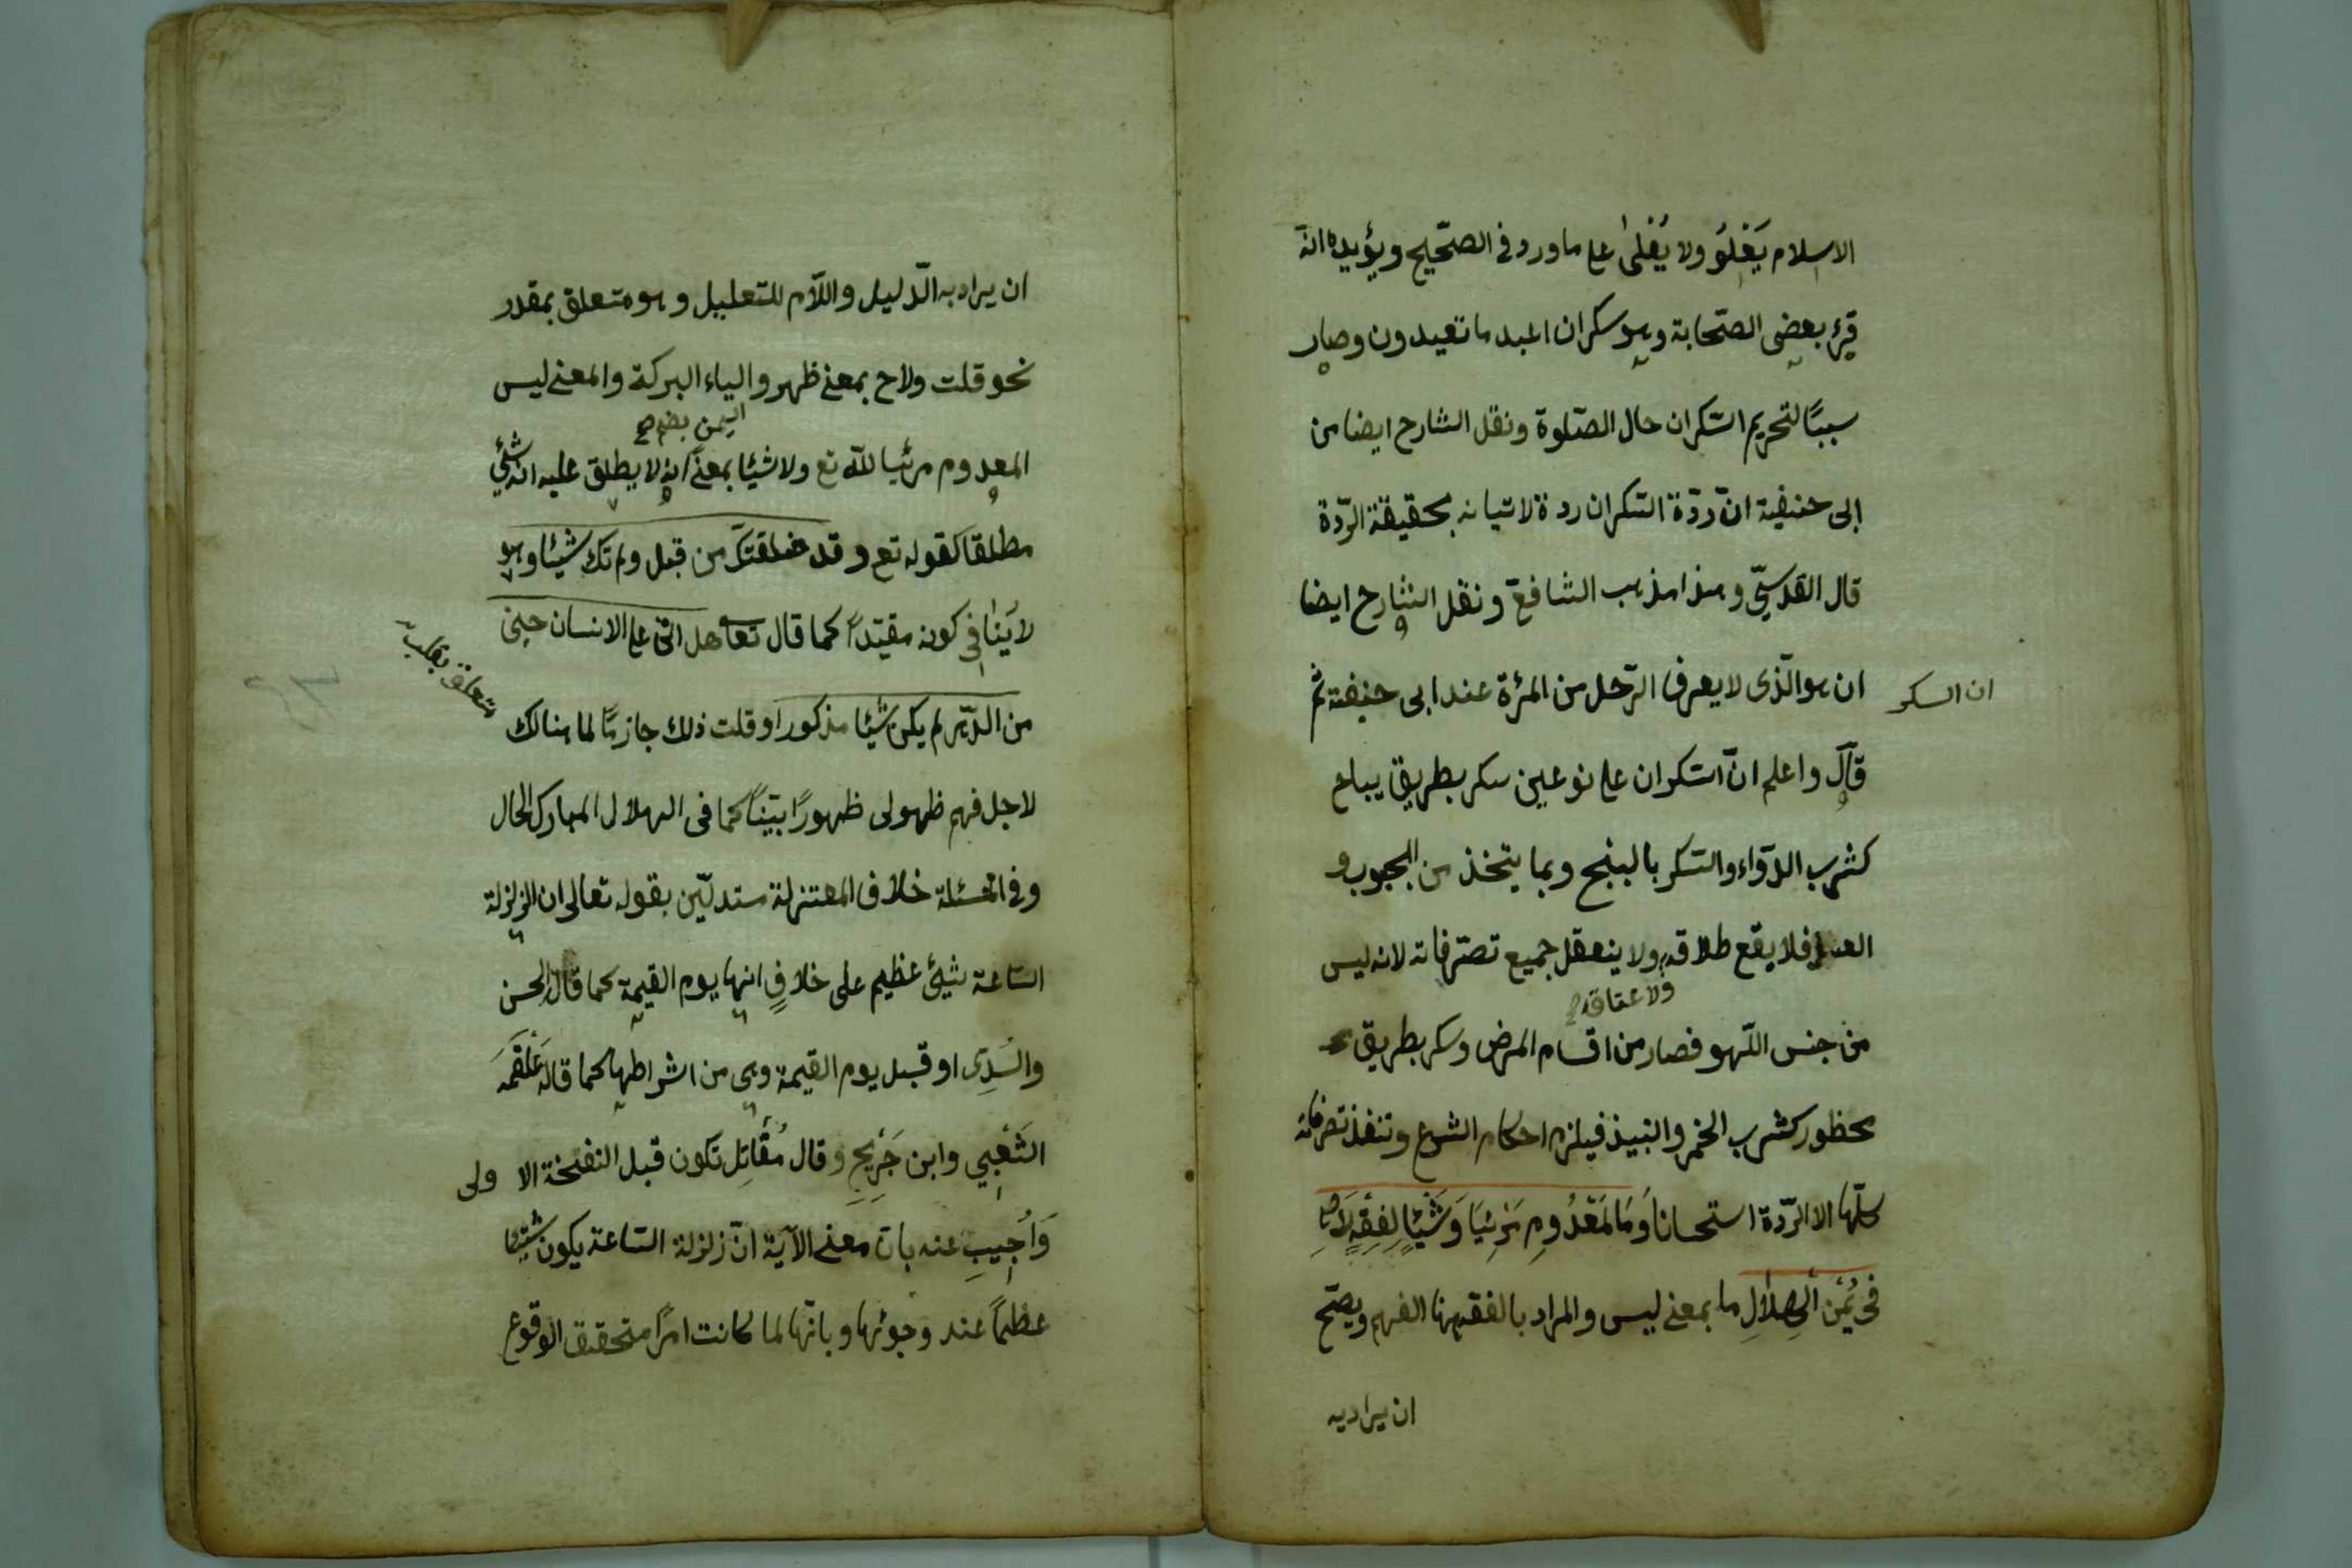 الاسلام يَعْلُو ولا يُعْلىٰ على ما ورد في الصّحيح ويؤيده انّه
قرئ بعض الصّحابة وهو سكران اعبد ما تعبدون وصار
سببًا لتحريم السّكران حال الصّلوة ونقل الشارح ايضا من
ابى حنيفة انّ ردّة السّكران ردة لاتيانه بحقيقة الرّدة
قال القدسيّ وهذا مذهب الشافعيّ ونقل الشارح ايضا
ان السكر
ان هو الّذى لا يعرف الرّجل من المرءة عند ابى حنيفة ثم
قال واعلم انّ السّكران على نوعين سكر بطريق يباح
كشرب الدّواء والسّكر بالبنج وبما يتخذ من الحبوب و
العسل فلا يقع طلاقه ولا ينعقل جميع تصرّفاته لانه ليس
ولا عتاقه
من جنس اللّهو فصار من اقسام المرض وسكر بطريق
محظور كشرب الخمر والنبيذ فيلزم احكام الشرع وتنفذ تصرفاته
كلّها الا الرّدة استحسانا وَمَا لمَعْدُومِ مَرْئِيَا وَشَيْئًا لِفِقْهٍ لَاحَ
فى يُمْنِ الْهِلَالِ ما بمعنى ليس والمراد بالفقه هنا الفهم ويصحّ
ان يراد به
ان يراد به الدّليل واللّام للتعليل وهو متعلق بمقدر
نحو قلت ولاح بمعنى ظهر والياء البركة والمعنى ليس
اليمن بضم
المعدوم مرئيا للّه تع ولا شيئا بمعنى انه لا يطلق عليه انه شئ
مطلقا كقوله تع وقد خلقتك من قبل ولم تك شيئا وهو
لا ينافي كونه مقيّدا كما قال تعالى هل اتى على الانسان حين
متعلق بقلت
من الدّهر لم يكن شيئا مذكورا وقلت ذلك جازمًا لما هنالك
لاجل فهم ظهر لى ظهورًا بيّنًا كما فى الهلال المبارك الحال
وفي المسئلة خلاف المعتزلة مستدلّين بقوله تعالى ان زلزلة
السّاعة شيئ عظيم على خلافٍ انها يوم القيمة كما قال الحسن
والسّدى او قبل يوم القيمة وهى من اشراطها كما قاله عَلْقَمَه
الشَعْبِي وابن جَرِيحِ وقال مُقَاتِل تكون قبل النفخة الاولى
وَاُجِيبِ عنه بان معنى الآية انّ زلزلة السّاعة يكون شيئا
عظيمًا عند وجودها وبانّها لما كانت امرًا متحقق الوقوع